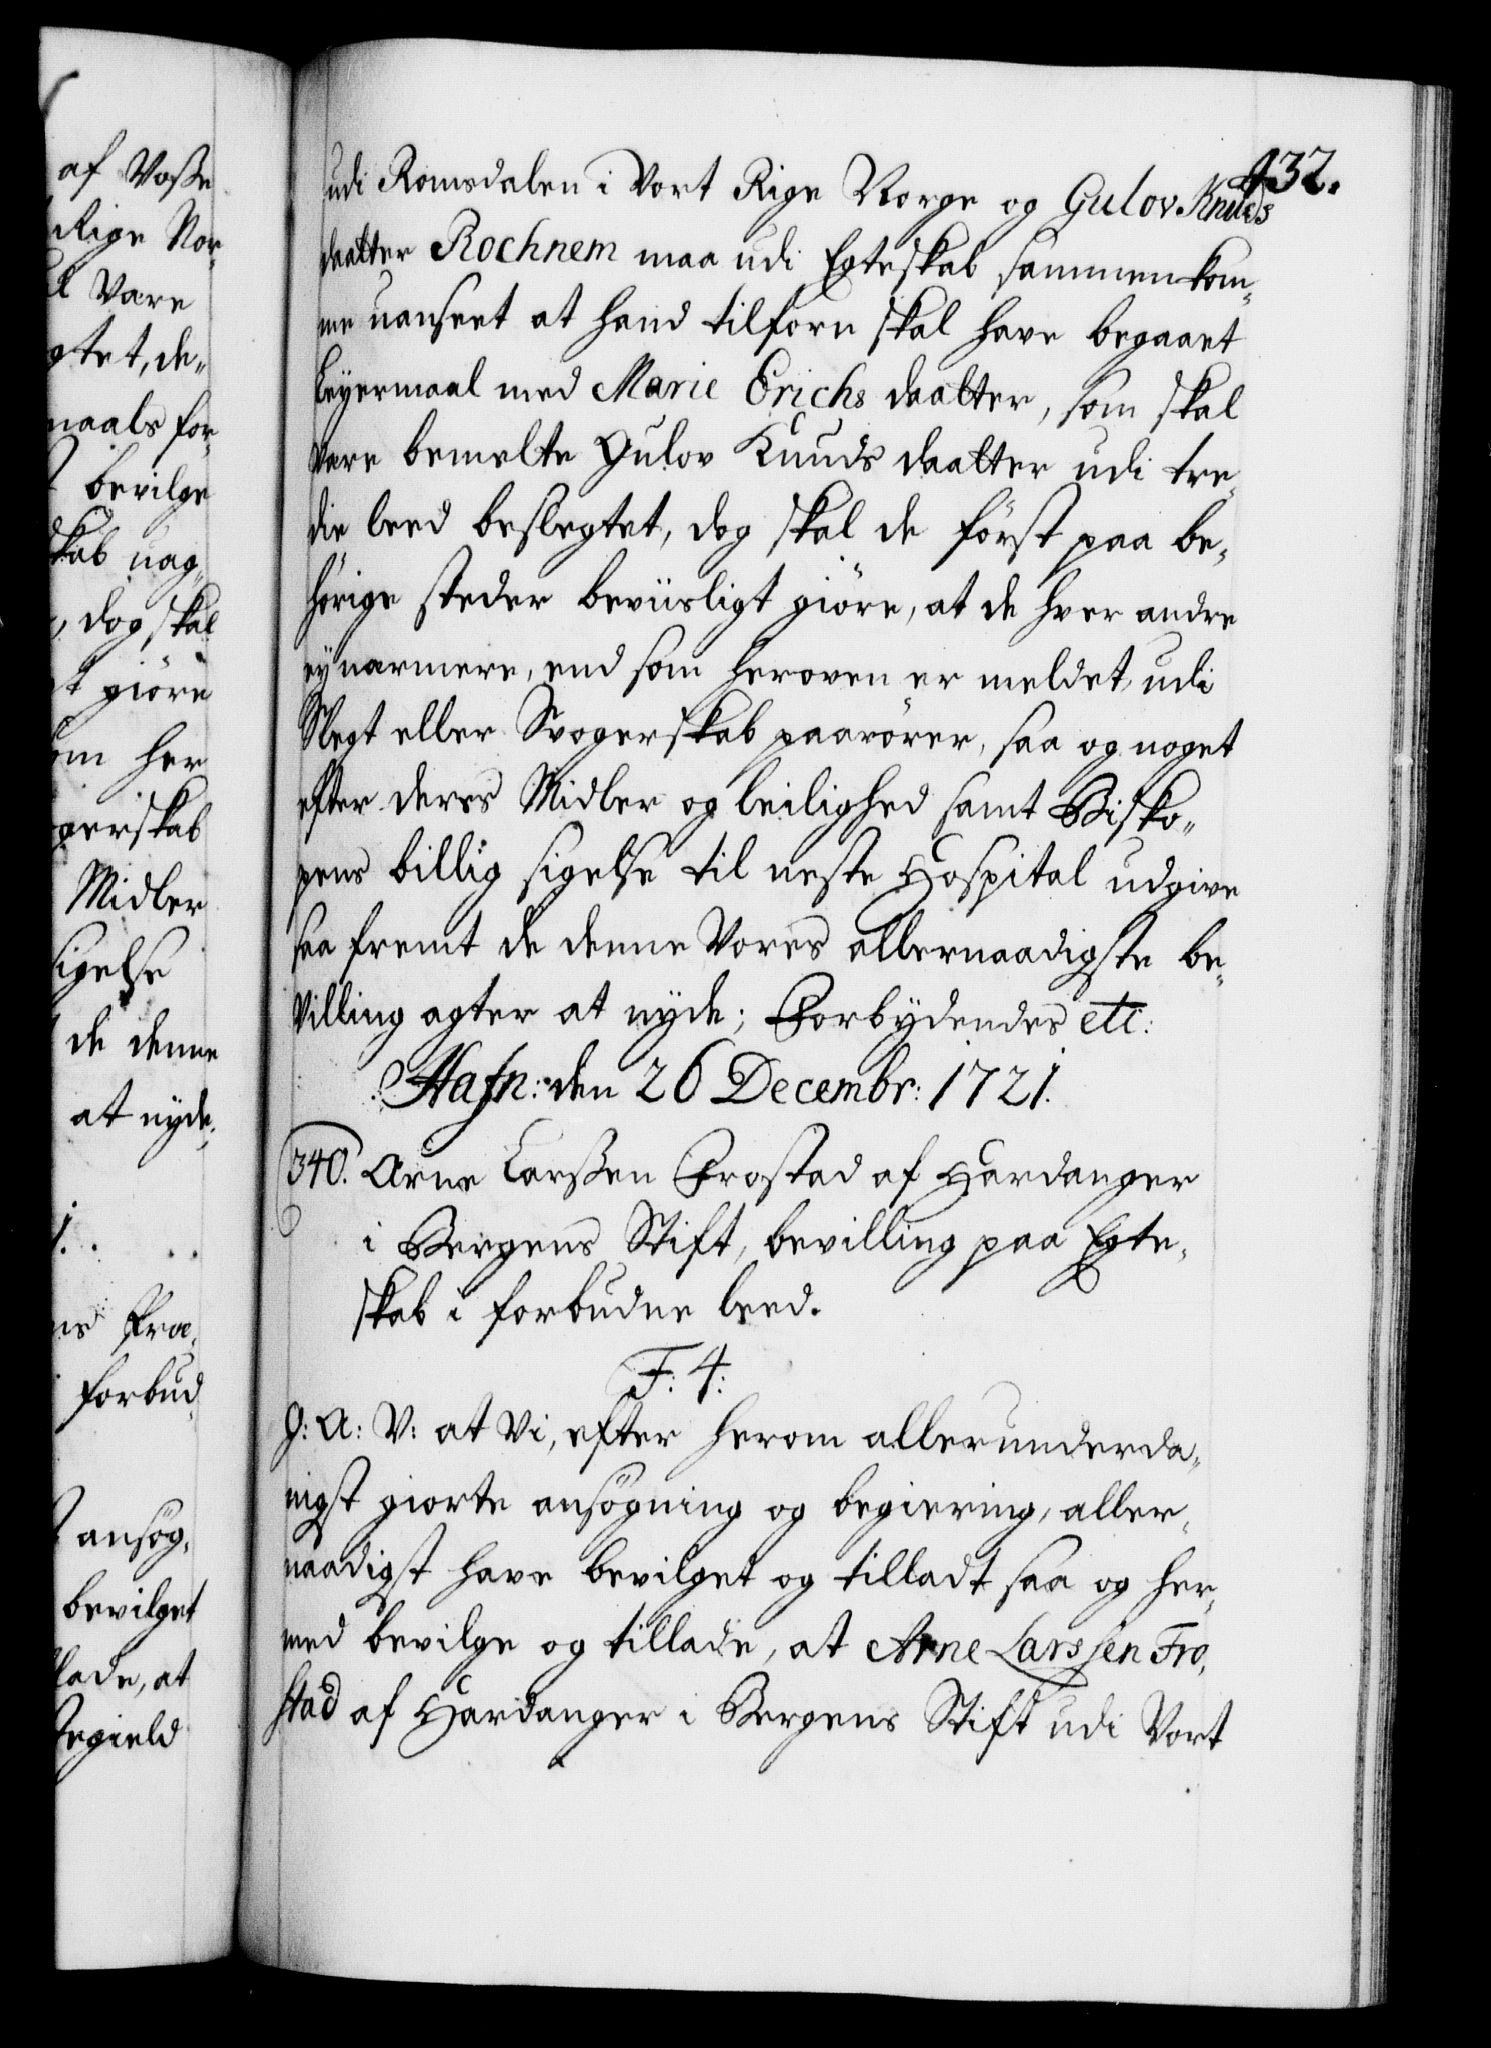 af Voße
Rige Nor-
Vare
gtet, de-
maals for-
bevilge
skab uag-
, dog skal
giöre
om her
gerskab
Midler
sigelse
de denne
at nyde.
Præ-
forbud-
ansög-
bevilget
lade, at
stegield
432.
udi Romsdalen i Vort Rige Norge og Gulov Knuds
daatter Rochnem maa udi Egteskab sammenkom-
me uanseet at hand tilforn skal have begaaet
Leyermaal med Marie Erichs daatter, som skal
være bemelte Gulov Knuds daatter udi tre-
die leed beslegtet, dog skal de först paa be-
hörige steder beviisligt giöre, at de hver andre
ey narmere, end som heroven er meldet, udi
Slegt eller Svogerskab paarörer, saa og noget
efter deres Midler og leilighed samt Bisko-
pens billig sigelse til neste Hospital udgive
saa fremt de denne Vores allernaadigste be-
villing agter at nyde; Forbydendes etc:
Hafn: den 26 Decembr: 1721.
340. Arne Larßen Frostad af Hardanger
i Bergens Stift, bevilling paa Egte-
skab i forbudne leed.
F: 4:
G: A: V: at Vi, efter herom allerunderda-
nigst giorte ansögning og begiering, aller-
naadigst have bevilget og tilladt saa og her-
med bevilge og tillade, at Arne Larssen Fro-
stad af Hardanger i Bergens Stift udi Vort